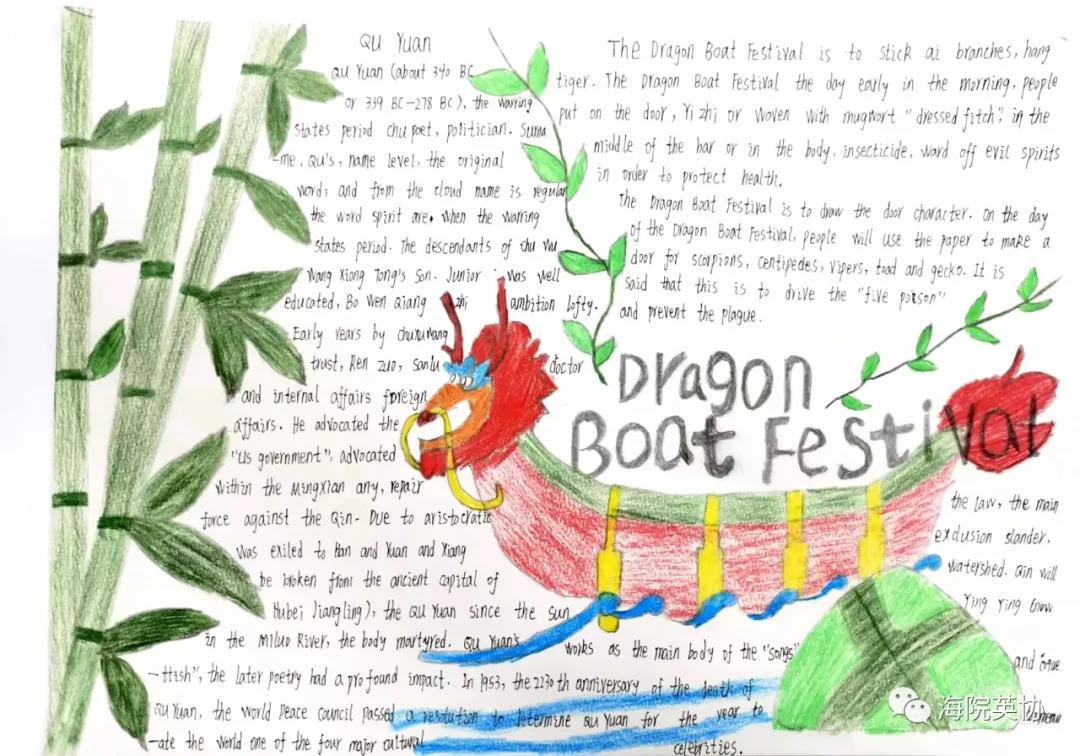 Qu Yuan
Qu Yuan (about 340 BC
or 339 BC-278 BC), the warring
states period chu poet, politician. Surna
-me, Qu's, name level, the original
word; and from the cloud name is regular
the word spirit are. when the warring
states period. The descendants of chu wu
wang xiong Tong's son. Junior was well
educated, Bo wen qiang zhi ambition lofty.
Early years by
trust, Ren zuo, doctor
and internal affairs foreign
affairs. He advocated the
"us government", advocated
within the Mingxian any, repair the law, the main
force against the Qin. Due to aristocratic exclusion slander,
was exiled to Han and Yuan and Xiang watershed. Qin will
be broken from the ancient capital of Ying Ying
Hubei Jiangling), the Qu Yuan since the sun
in the Miluo River, the body martyred. Qu Yuan's works as the main body of the "songs" and
the later poetry had a profound impact. In 1953, the 2230th anniversary of the death of
Qu Yuan, the World Peace Council passed a resolution to determine Qu Yuan for the year to
-ate the world one of the four major cultural celebrities.
The Dragon Boat Festival is to stick ai branches, hang
tiger. The Dragon Boat Festival the day early in the morning, people
put on the door, Yi zhi or woven with mugwort "dressed fitch", in the
middle of the bar or in the body, insecticide, ward off evil spirits
in order to protect health.
The Dragon Boat Festival is to draw the door character. on the day
of the Dragon Boat Festival, people will use the paper to make a
door for scorpions, centipedes, vipers, toad and gecko. It is
said that this is to drive the "five poison"
and prevent the plague.
Dragon
Boat Festival
海院英协